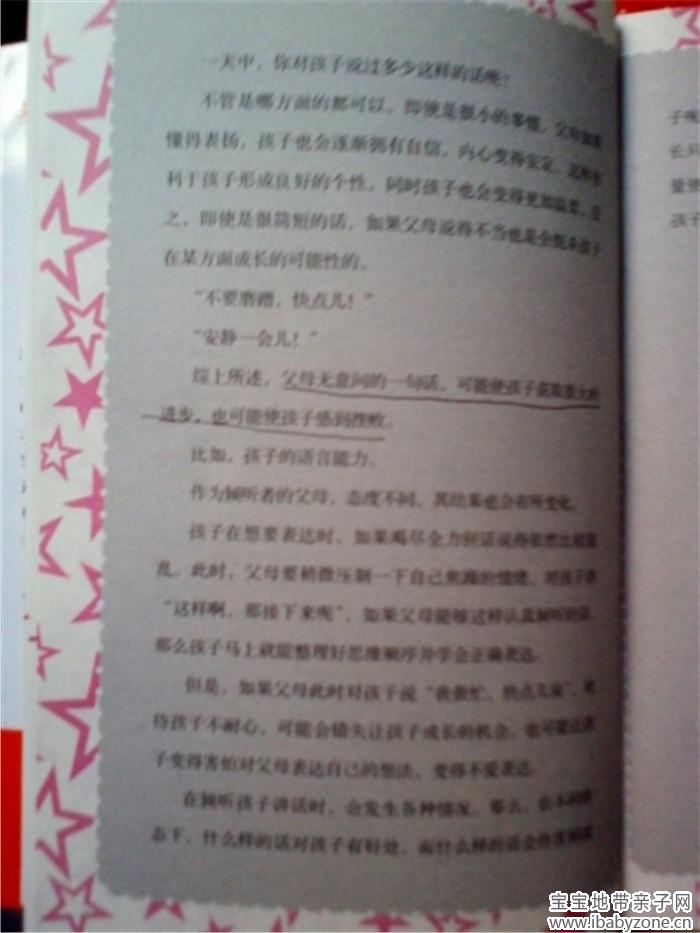 一天中，你对孩子说过多少这样的话呢？
不管是哪方面的都可以。即使是很小的事情，父母如果
懂得表扬，孩子也会逐渐拥有自信，内心变得安定，这样有
利于孩子形成良好的个性。同时孩子也会变得更加温柔。反
之，即使是很简短的话，如果父母说得不当也是会扼杀孩子
在某方面成长的可能性的。
“不要磨蹭，快点儿！”
“安静一会儿！”
综上所述，父母无意间的一句话，可能使孩子获取很大的
进步，也可能使孩子感到挫败。
比如，孩子的语言能力。
作为倾听者的父母，态度不同，其结果也会有所变化。
孩子在想要表达时，如果竭尽全力但话说得依然比较混
乱。此时，父母要稍微压制一下自己焦躁的情绪，对孩子讲
“这样啊，那接下来呢”，如果父母能够这样认真倾听的话，
那么孩子马上就能整理好思维顺序并学会正确表达。
但是，如果父母此时对孩子说“我很忙，快点儿说”，对
待孩子不耐心，可能会错失让孩子成长的机会，也可能让孩
子变得害怕对父母表达自己的想法，变得不爱表达。
在倾听孩子讲话时，会发生各种情况。那么，在不同状
态下，什么样的话对孩子有好处，而什么样的话会伤害到孩
子呢
长只
量使
孩子
宝宝地带亲子网
www.ibabyzone.cn